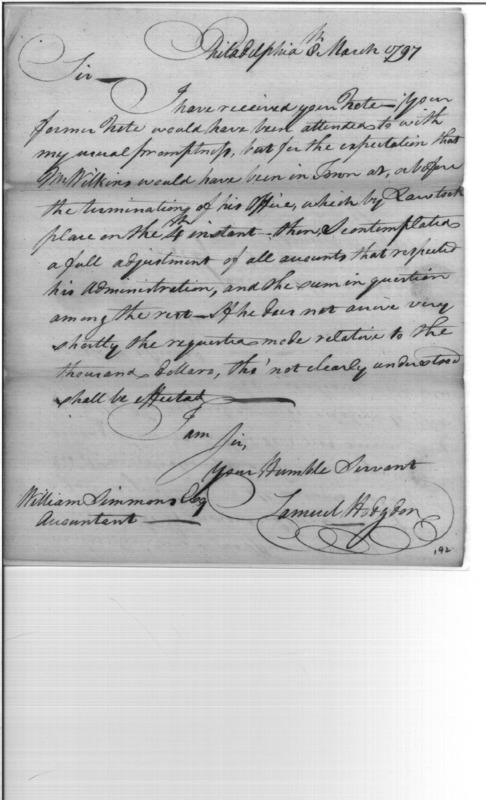 Philadelphia 8th March 1797
Sir
I have received your Note – your
former Note would have been attended to with
my usual promptness, but for the expectation that
Mr Wilkins would have been in Town at, or before
the termination of his Office, which by Law took
place on the 4th instant – then, I contemplated
a full adjustment of all accounts that respected
his Administration, and the sum in question
among the rest – If he does not arrive very
shortly the request made relative to the
thousand dollars, tho' not clearly understood
shall be effected
I am Sir,
Your Humble Servant
William Simmons Esq
Accountant
Samuel Hodgdon
192